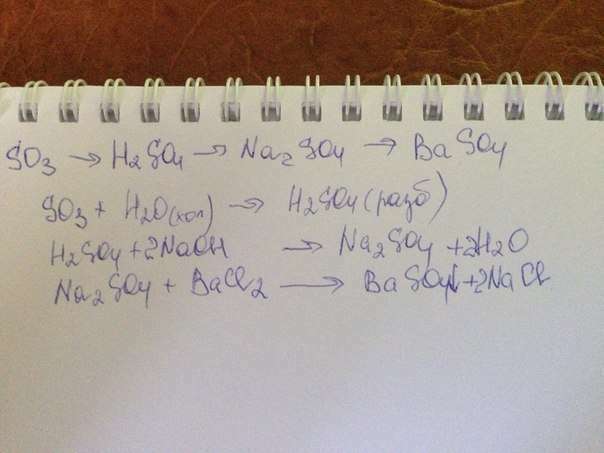 SO3 → H2SO4 → Na2SO4 → BaSO4
SO3 + H2O(хол) → H2SO4(разб)
H2SO4 + 2NaOH → Na2SO4 + 2H2O
Na2SO4 + BaCl2 → BaSO4↓ + 2NaCl